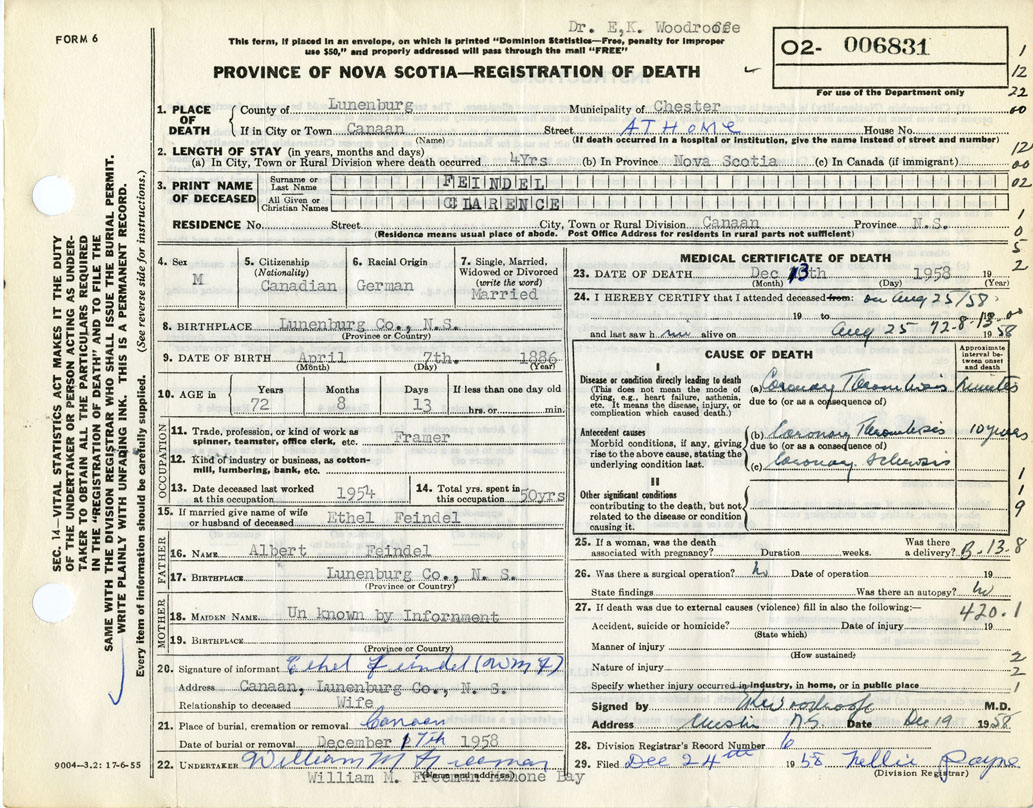 Dr. E,K. Woodroofe
FORM 6
This form, if placed in an envelope, on which is printed "Dominion Statistics—Free, penalty for improper
use $50," and properly addressed will pass through the mail "FREE"
PROVINCE OF NOVA SCOTIA—REGISTRATION OF DEATH
02- 006831
For use of the Department only
1
12
22
00
12
00
02
1
0
5
2
1. PLACE OF DEATH County of Lunenburg Municipality of Chester
If in City or Town Canaan Street AT HOME House No.
(Name) (If death occurred in a hospital or institution, give the name instead of street and number)
2. LENGTH OF STAY (in years, months and days)
(a) In City, Town or Rural Division where death occurred 4Yrs (b) In Province Nova Scotia (c) In Canada (if immigrant)
3. PRINT NAME OF DECEASED
Surname or Last Name FEINDEL
All Given or Christian Names CLARENCE
RESIDENCE No. Street City, Town or Rural Division Canaan Province N.S.
(Residence means usual place of abode. Post Office Address for residents in rural parts not sufficient)
4. Sex M
5. Citizenship (Nationality) Canadian
6. Racial Origin German
7. Single, Married, Widowed or Divorced (write the word) Married
8. BIRTHPLACE Lunenburg Co., N.S.
(Province or Country)
9. DATE OF BIRTH April 7th. 1886
(Month) (Day) (Year)
10. AGE in Years 72 Months 8 Days 13 If less than one day old
hrs. or min.
OCCUPATION
11. Trade, profession, or kind of work as
spinner, teamster, office clerk, etc. Framer
12. Kind of industry or business, as cotton-
mill, lumbering, bank, etc.
13. Date deceased last worked at this occupation 1954
14. Total yrs. spent in this occupation 50yrs
15. If married give name of wife
or husband of deceased Ethel Feindel
FATHER
16. NAME Albert Feindel
17. BIRTHPLACE Lunenburg Co., N. S.
(Province or Country)
MOTHER
18. MAIDEN NAME Un known by Infornment
19. BIRTHPLACE
(Province or Country)
20. Signature of informant Ethel Feindel
Address Canaan, Lunenburg Co., N. S.
Relationship to deceased Wife
21. Place of burial, cremation or removal Canaan
Date of burial or removal December 17th 1958
22. UNDERTAKER William M Freeman
(Name and address)
William M. Freeman Mahone Bay
MEDICAL CERTIFICATE OF DEATH
23. DATE OF DEATH Dec 13th 1958 19
(Month) (Day) (Year)
24. I HEREBY CERTIFY that I attended deceased from: on Aug 25/58
19 to
and last saw h im alive on Aug 25 72-8-13-00 1958
CAUSE OF DEATH
Approximate interval between onset and death
I
Disease or condition directly leading to death
(This does not mean the mode of dying, e.g., heart failure, asthenia, etc. It means the disease, injury, or complication which caused death.)
(a) Coronary Thrombosis Minutes
due to (or as a consequence of)
Antecedent causes
Morbid conditions, if any, giving rise to the above cause, stating the underlying condition last.
(b) Coronary Thrombosis 10 years
due to (or as a consequence of)
(c) Coronary Sclerosis
II
Other significant conditions
contributing to the death, but not related to the disease or condition causing it.
1
1
9
25. If a woman, was the death associated with pregnancy? Duration weeks. Was there a delivery? B-13-8
26. Was there a surgical operation? no Date of operation 19
State findings Was there an autopsy? no
27. If death was due to external causes (violence) fill in also the following:—
420.1
Accident, suicide or homicide? Date of injury 19
(State which)
Manner of injury
(How sustained)
2
Nature of injury
2
Specify whether injury occurred in industry, in home, or in public place
1
Signed by EKWoodroofe M.D.
Address Chester N.S. Date Dec 19 1958
28. Division Registrar's Record Number 6
29. Filed Dec 24th 1958 Nellie Payne
(Division Registrar)
SEC. 14—VITAL STATISTICS ACT MAKES IT THE DUTY
OF THE UNDERTAKER OR PERSON ACTING AS UNDER-
TAKER TO OBTAIN ALL THE PARTICULARS REQUIRED
IN THE "REGISTRATION OF DEATH" AND TO FILE THE
SAME WITH THE DIVISION REGISTRAR WHO SHALL ISSUE THE BURIAL PERMIT.
WRITE PLAINLY WITH UNFADING INK. THIS IS A PERMANENT RECORD.
Every item of information should be carefully supplied. (See reverse side for instructions.)
9004—3.2: 17-6-55